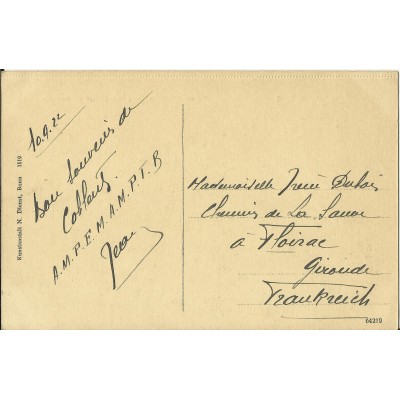 10.9.22
Bon souvenir de
Coblentz
A.M.P.E.M.A.M.P.T.B
Jean
Kunstanstalt N. Dienst, Bonn 1919
Mademoiselle Irène Dubois
Chemin de La
à Floirac
Gironde
Frankreich
64219